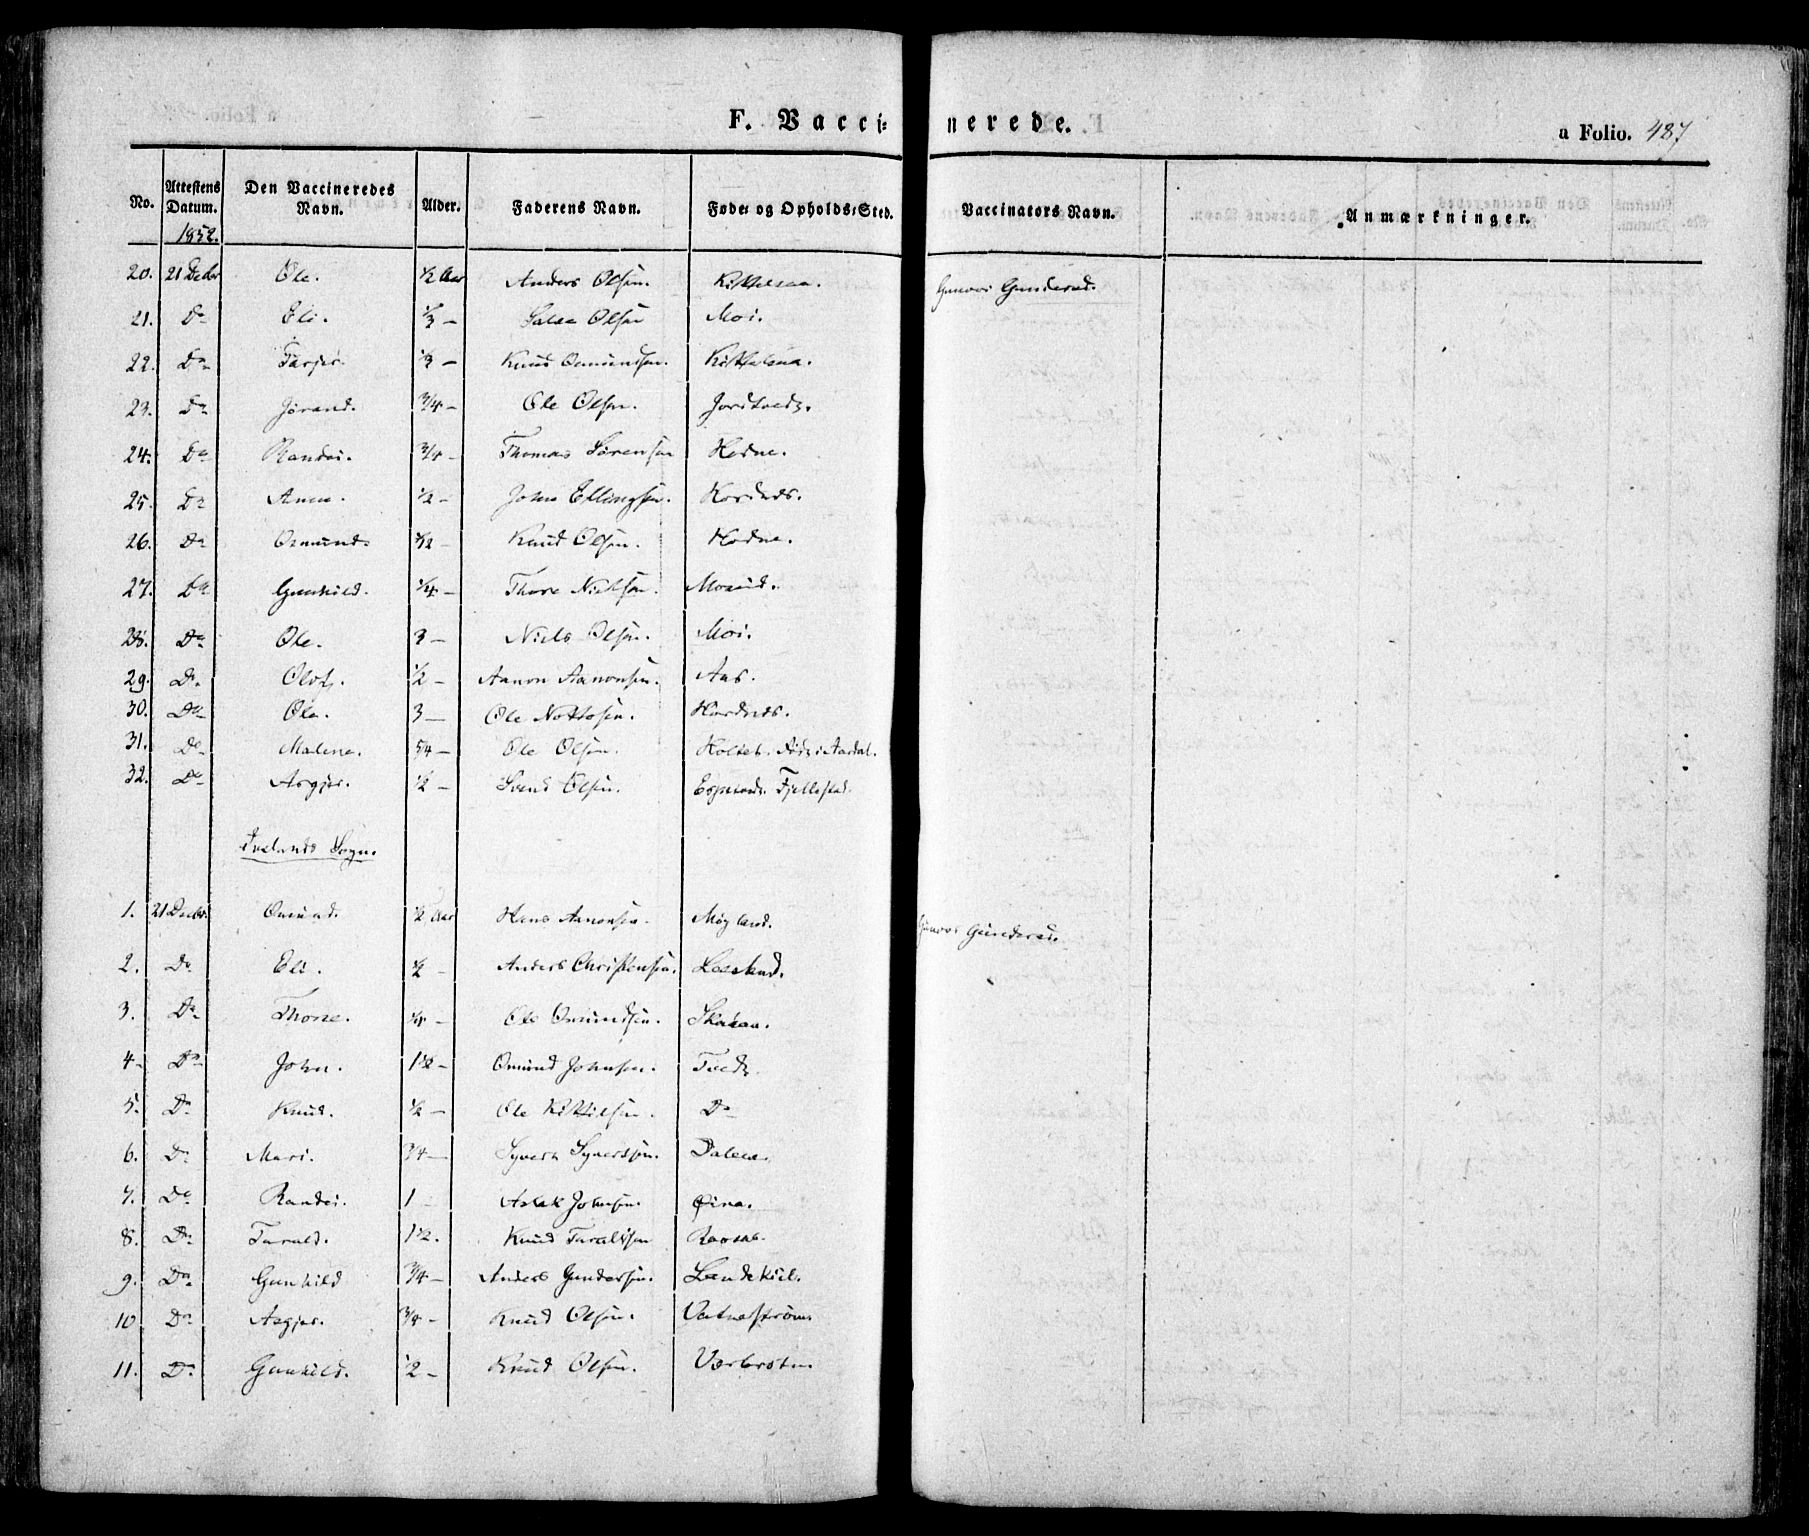 F. Vacci- nerede. a Folio. 487
No. Attestens Datum. Den Vaccineredes Navn. Alder. Faderens Navn. Føde- og Opholds-Sted. Vaccinators Navn. Anmærkninger.
1852.
20. 21 Decbr Ole. 1/2 Aar Anders Olsen. Kittelsaa. Gunvor Gundersd.
21. Do Eli. 1/2 — Olsen Moi.
22. Do Tarjer. 1/2 — Knud Osmundsen. Kittelsaa.
23. Do Jørand. 3/4 — Ole Olsen. Jordtvedt.
24. Do Randei. 3/4 — Thomas Sørensen Hodne.
25. Do Anne. 1/2 — John Ellingsen. Hordnes.
26. Do Osmund. 1/2 — Knud Olsen. Hodne.
27. Do Gunhild. 1/4 — Thore Nielsen. Mosund.
28. Do Ole. 3 — Niels Olsen. Moi.
29. Do Olof. 1/2 — Aanon Aanonsen. Aas.
30. Do Ole. 3 — Ole Nottosen. Hordnes.
31. Do Malene. 5/4 — Ole Olsen. Holtet. Aardal.
32. Do Asgjer. 1/2 — Svend Olsen. Fjellestad.
Ivelands Sogn.
1. 21 Decbr. Omund. 1/2 Aar Hans Aanonsen. Møgland. Gunvor Gundersd.
2. Do Eli. 1/2 — Anders Christensen.
3. Do Thore. 1/4 — Ole Omundsen. Skaiaa.
4 — Do John. 1 1/2 — Omund Johnsen. Tvedt.
5. Do Knud. 1/2 — Ole Kittilsen. Do
6. Do Mari. 3/4 — Syvert Syvertsen. Dalen.
7. Do Randei. 1 — Aslak Johnsen. Øina.
8. Do Tarald. 1 1/2. Knud Taraldsen Raasas.
9. Do Gunhild 3/4 — Anders Gundersen. Landekiil.
10 Do Asgjer. 3/4 — Knud Olsen. Vatnestrøm.
11. Do Gunhild. 1/2 — Knud Olsen. Værbroten